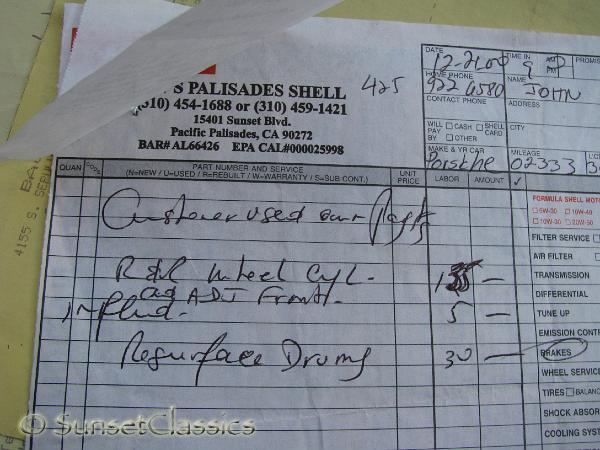 'S PALISADES SHELL
(310) 454-1688 or (310) 459-1421
15401 Sunset Blvd.
Pacific Palisades, CA 90272
BAR# AL66426 EPA CAL#000025998
425
DATE
TIME IN
AM
PM
PROMIS
HOME PHONE
922 6580
NAME
JOHN
CONTACT PHONE
ADDRESS
WILL PAY BY
CASH
SHELL CARD
OTHER
CITY
MAKE & YR CAR
Porsche
MILEAGE
02333
LIC
QUAN
CODE
PART NUMBER AND SERVICE
(N=NEW / U=USED / R=REBUILT / W=WARRANTY / S=SUB CONT.)
UNIT PRICE
LABOR
AMOUNT
✓
Customer used own Parts
R&R Wheel Cyl-
ADJ Front.
fluid. 5 —
Resurface Drums 30 —
FORMULA SHELL MOT
5W-30 10W-40
10W-30 20W-50
FILTER SERVICE
AIR FILTER
TRANSMISSION
DIFFERENTIAL
TUNE UP
EMISSION CONTR
BRAKES
WHEEL SERVICE
TIRES BALANC
SHOCK ABSOR
COOLING SYST
4155 S. SEPU
© SunsetClassics